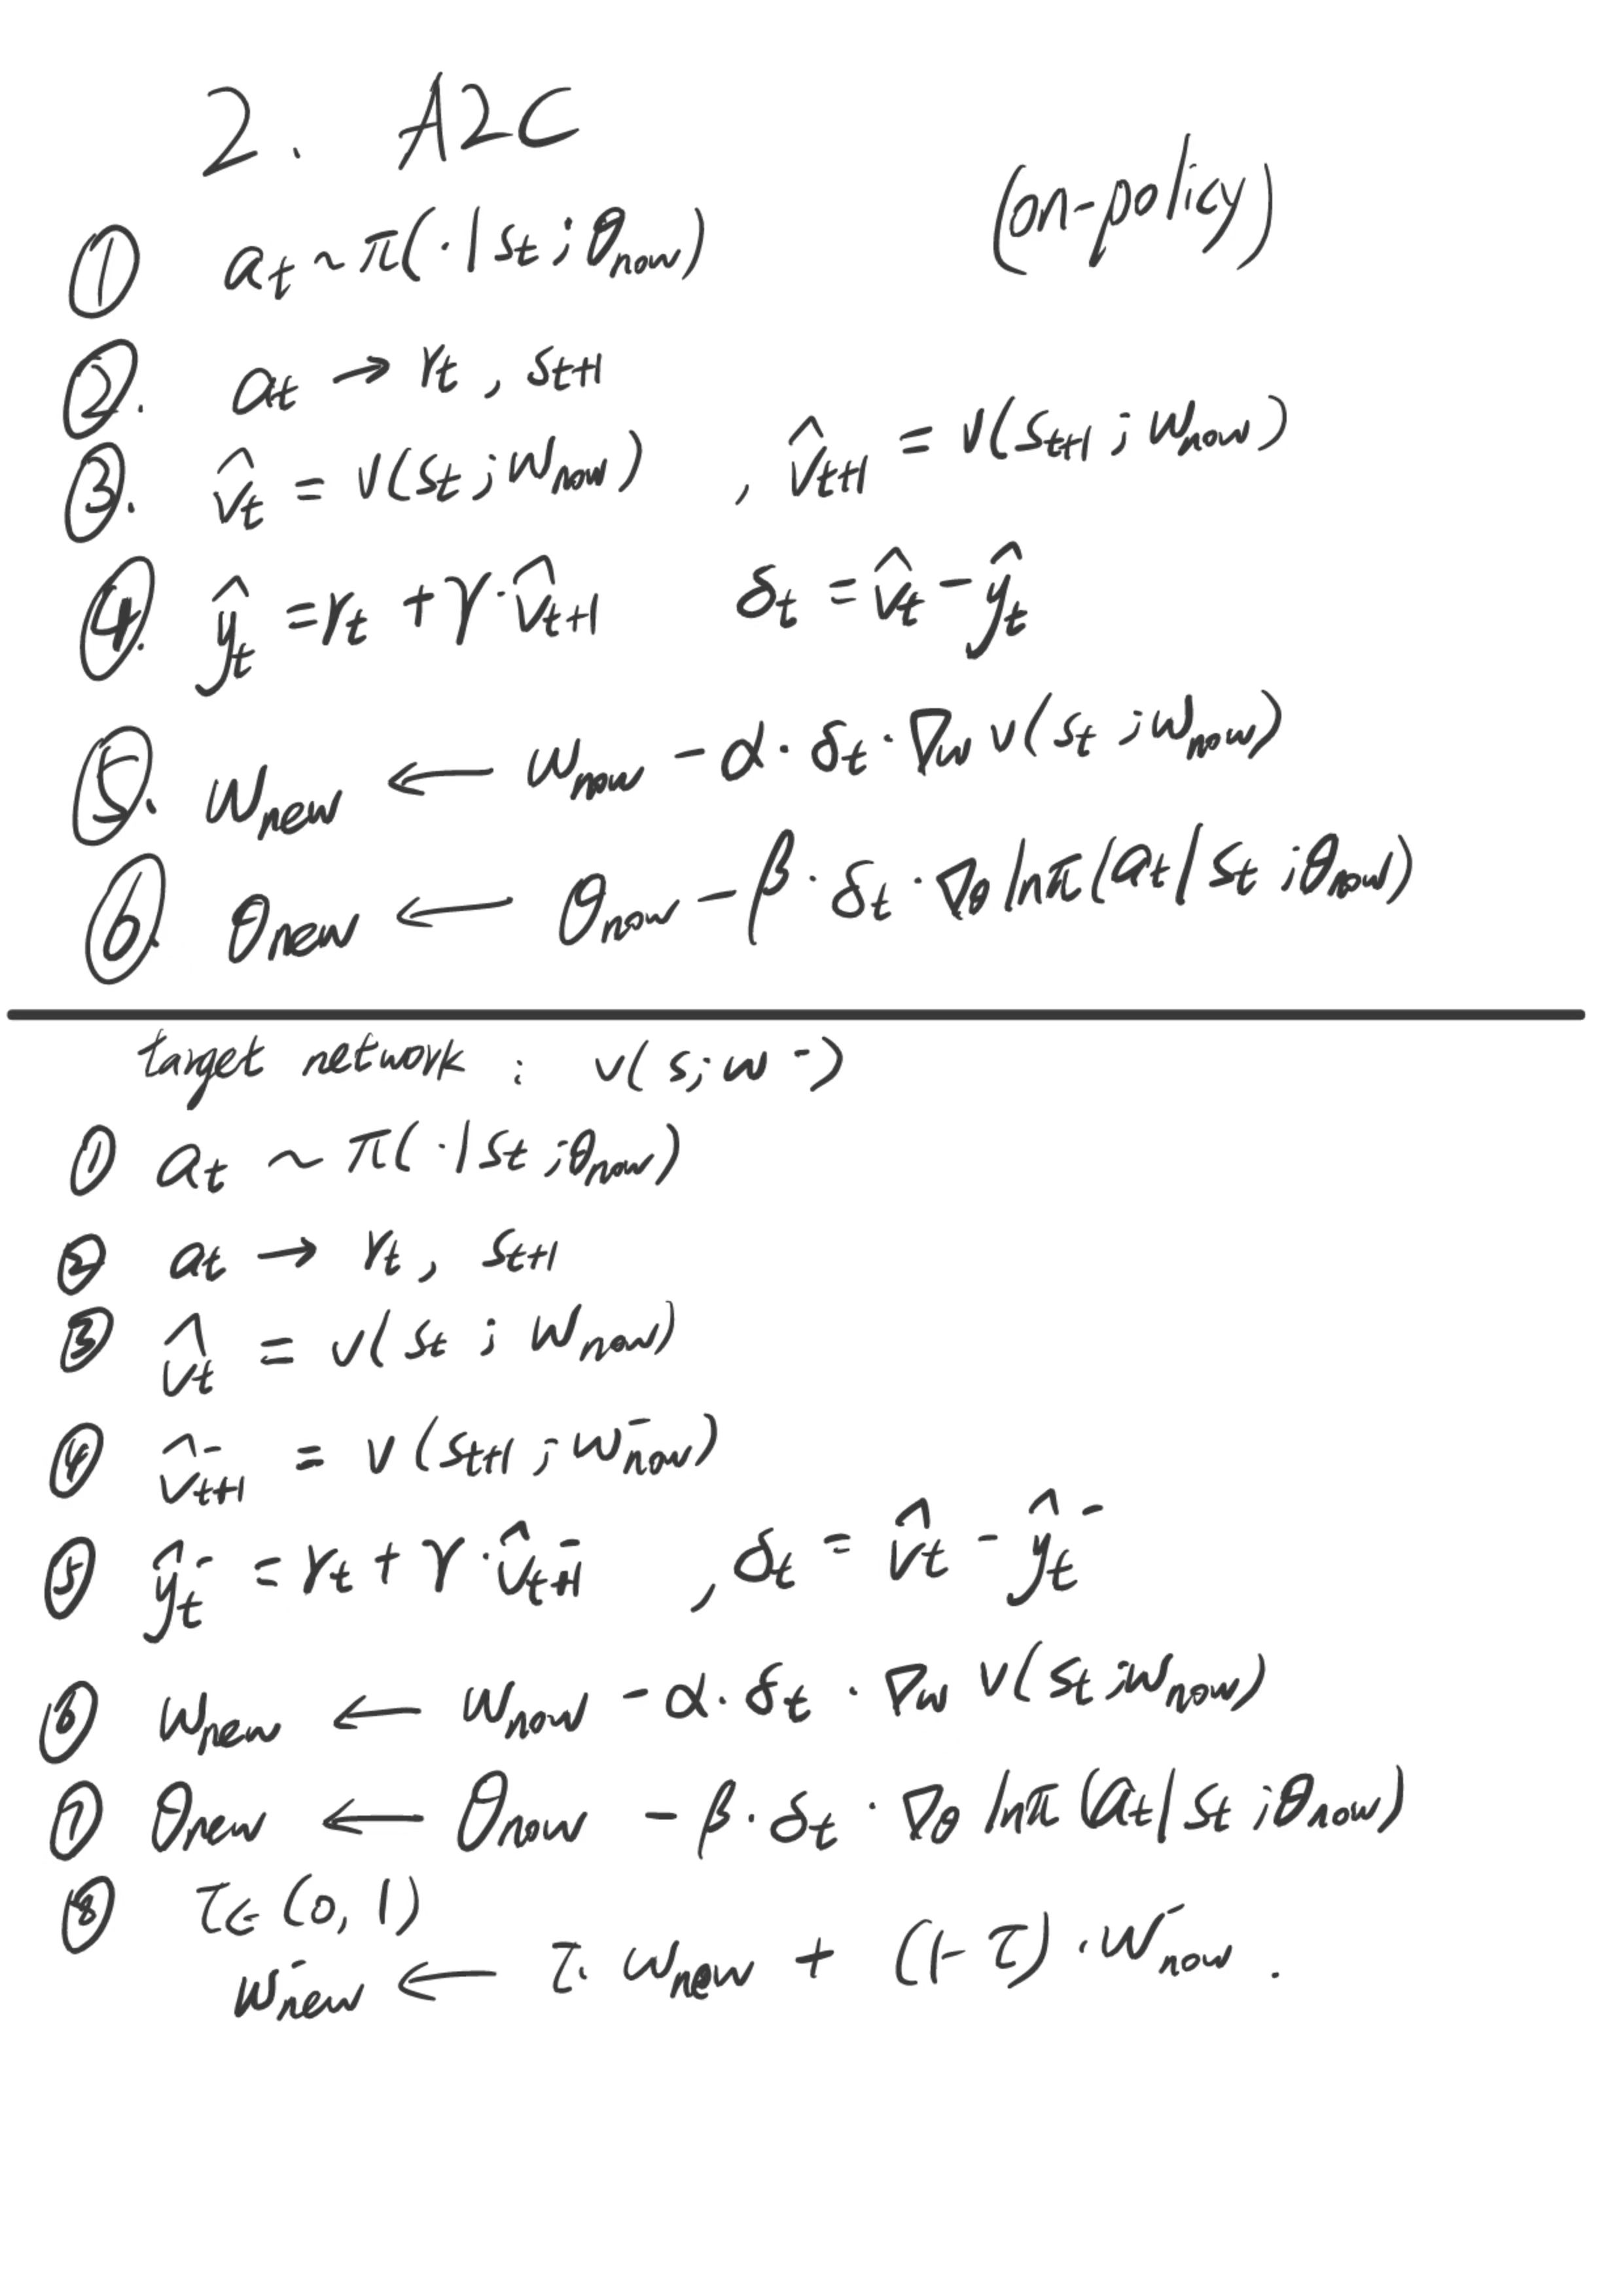 2. A2C
(on-policy)
① aₜ ~ π(·|sₜ; θnow)
②. aₜ → rₜ, sₜ₊₁
③. v̂ₜ = v(sₜ; wnow) , v̂ₜ₊₁ = v(sₜ₊₁; wnow)
④. ŷₜ = rₜ + γ·v̂ₜ₊₁ δₜ = v̂ₜ - ŷₜ
⑤. wnew ← wnow - α·δₜ·∇w v(sₜ; wnow)
⑥. θnew ← θnow - β·δₜ·∇θ lnπ(aₜ|sₜ; θnow)
target network: v(s; w⁻)
① aₜ ~ π(·|sₜ; θnow)
② aₜ → rₜ, sₜ₊₁
③ v̂ₜ = v(sₜ; wnow)
④ v̂⁻ₜ₊₁ = v(sₜ₊₁; w⁻now)
⑤ ŷₜ⁻ = rₜ + γ·v̂⁻ₜ₊₁ , δₜ = v̂ₜ - ŷₜ⁻
⑥ wnew ← wnow - α·δₜ·∇w v(sₜ; wnow)
⑦ θnew ← θnow - β·δₜ·∇θ lnπ(aₜ|sₜ; θnow)
⑧ τ∈(0,1)
w⁻new ← τ·wnew + (1-τ)·w⁻now.